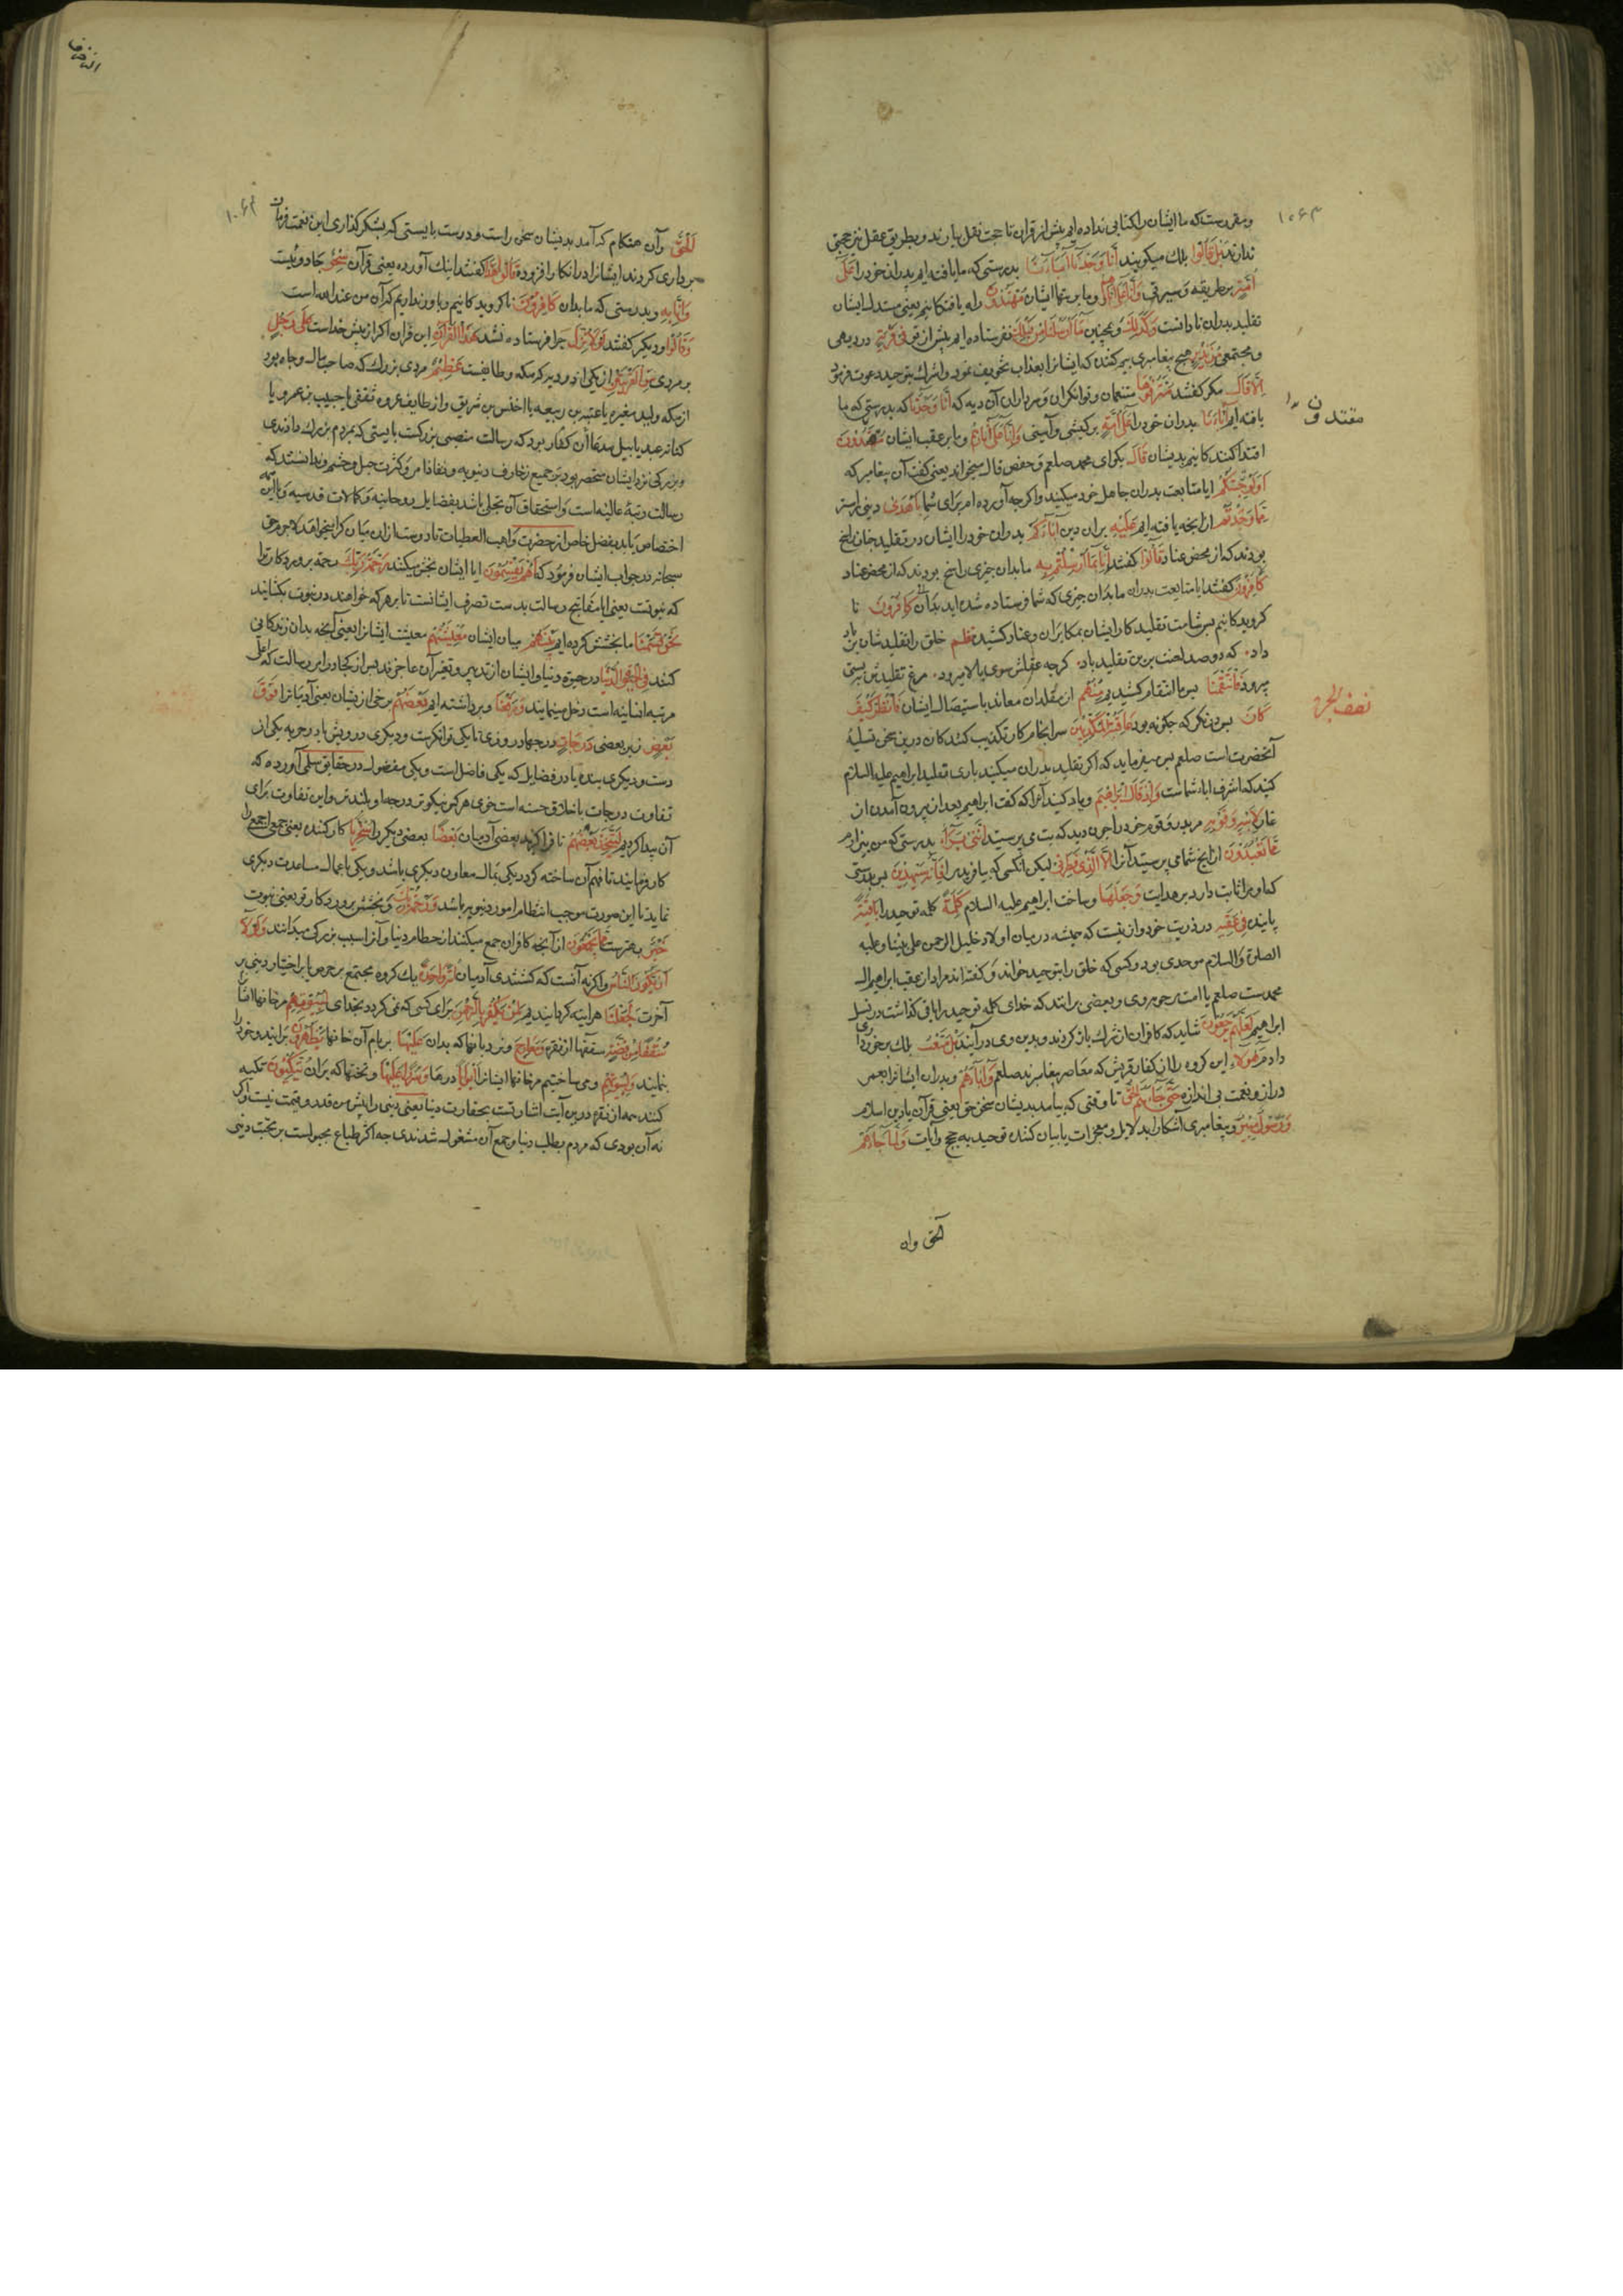 ۱۰۶۳
ومقررست که ما ایشان را کتابی نداده ایم پیش از قران تا حجت نقل بیارند و بطریق عقل نیز حجتی
ندارند بَل قَالُوا بلک میکویند اِنَّا وَجَدْنَا آبَاءَنَا بدرستی که ما یافته ایم پدران خود را عَلَى
اُمَّةٍ بر طریقه و سیرتی وَاِنَّا عَلَى آثَارِهِمْ و ما بر پیهای ایشان مُهْتَدُونَ راه یافتکانیم یعنی مستدل ایشان
تقلید پدران نادانست وَكَذَلِكَ و همچنین مَا اَرْسَلْنَا مِنْ قَبْلِكَ نفرستاده ایم پیش از تو فِي قَرْيَةٍ در دیهی
و مجتمعی مِنْ نَذِيرٍ هیچ پیغامبری بیم کننده که ایشانرا بعذاب تخویف نمود و اشراک بتوحید دعوت فرمود
اِلَّا قَالَ مکر کفتند مُتْرَفُوهَا متنعمان و توانکران و سرداران آن دیه که اِنَّا وَجَدْنَا که بدرستی که ما
یافته ایم آبَاءَنَا پدران خود را عَلَى اُمَّةٍ بر کیشی و آیینی وَاِنَّا عَلَى آثَارِهِمْ و ما بر عقب ایشان مُقْتَدُونَ
مقتدون
اقتدا کنند کانیم بدیشان قَالَ بکو ای محمد صلعم و حفص قال میخواند یعنی کفت آن پیغامبر که
اَوَلَوْ جِئْتُكُمْ ایا متابعت پدران جاهل خود میکنید و اکر چه آورده ام برای شما بِاَهْدَى دینی راستر
مِمَّا وَجَدْتُمْ از انچه یافته اید عَلَيْهِ بران دین آبَاءَكُمْ پدران خود را ایشان در تقلید چنان راسخ
بودند که از محض عناد قَالُوا کفتند اِنَّا بِمَا اُرْسِلْتُمْ بِهِ ما بدان چیزی راسخ بودند که از محض عناد
كَافِرُونَ کفتند با متابعت پدران ما بدان چیزی که شما فرستاده شده اید بدان کافرون نا
کرویدکانیم پس شامت تقلید کار ایشان بمکابران و عناد کشید نظم خلق را تقلیدشان بر باد
داد، که دو صد لعنت برین تقلید باد، کرچه عقلش سوی بالا میرود، مرغ تقلیدش بپستی
میرود فَانْتَقَمْنَا پس ما انتقام کشیدیم مِنْهُمْ از مقلدان معاند باستیصال ایشان فَانْظُرْ كَيْفَ
نصف الجزء
كَانَ پس در نکر که چکونه بود عَاقِبَةُ الْمُكَذِّبِينَ سرانجام کار تکذیب کنندکان درین سخن تسلیۀ
آنحضرت است صلعم پس میفرماید که اکر تقلید پدران میکنید باری تقلید ابراهیم علیه السلام
کنید که اشرف ابا شماست وَاِذْ قَالَ اِبْرَاهِيمُ و یاد کنید آنرا که کفت ابراهیم بعد از بیرون آمدن از
غار لِاَبِيهِ وَقَوْمِهِ مر پدر و قوم خود را چون دید که بت می پرستید اِنَّنِي بَرَاءٌ بدرستی که من بیزارم
مِمَّا تَعْبُدُونَ از انچ شما می پرستید آنرا اِلَّا الَّذِي فَطَرَنِي لیکن آنکسی که بیافرید مرا فَاِنَّهُ سَيَهْدِينِ پس بدرستی
که او مرا ثابت دارد بر هدایت وَجَعَلَهَا و ساخت ابراهیم علیه السلام كَلِمَةً کلمه توحید را بَاقِيَةً
پاینده فِي عَقِبِهِ در ذریت خود و از ینست که همیشه در میان اولاد خلیل الرحمن علی نبینا و علیه
الصلوة و السلام موحدی بود و کسی که خلق را بتوحید خواند و کفته اند مراد از عقب ابراهیم ال
محمدست صلعم یا امت مرحومه وی و بعضی برانند که خدای کلمه توحید را باقی کذاشت در نسل
ابراهیم لَعَلَّهُمْ يَرْجِعُونَ شاید که کافران از شرک باز کردند و بدین وی در آیند بَلْ مَتَّعْتُ بلک برخورداری
دادم هَؤُلَاءِ این کروه را از کفار قریش که معاصر پیغامبرند صلعم وَآبَاءَهُمْ و پدران ایشانرا بعمر
دراز و نعمت بی اندازه حَتَّى جَاءَهُمُ الْحَقُّ تا وقتی که بیامد بدیشان سخن حق یعنی قرآن یا دین اسلام
وَرَسُولٌ مُبِينٌ و پیغامبری آشکارا بدلایل و معجزات یا بیان کننده توحید به حجج و آیات وَلَمَّا جَاءَهُمُ
الحق وان
۱۰۶۴
الْحَقُّ وآن هنکام که آمد بدیشان سخن راست و درست بایستی که بشکر کذاری این نعمت فرمان
برداری کردندی ایشانرا در انکار افزود قَالُوا هَذَا کفتند اینک آورده یعنی قرآن سِحْرٌ جادوئیست
وَاِنَّا بِهِ و بدرستی که ما بدان كَافِرُونَ ناکرویدکانیم و باور نداریم که آن من عند الله است
وَقَالُوا و دیکر کفتند لَوْلَا نُزِّلَ چرا فرستاده نشد هَذَا الْقُرْآنُ این قران اکر از پیش خداست عَلَى رَجُلٍ
بر مردی مِنَ الْقَرْيَتَيْنِ از یکی از دو دیه که مکه و طایفست عَظِيمٍ مردی بزرک که صاحب مال و جاه بود
از مکه ولید مغیره یا عتبه بن ربیعه یا اخنس بن شریق و از طایف عروه ثقفی یا حبیب بن عمرو یا
کنانه عبد یالیل مدعا آن کفار بود که رسالت منصبی بزرکست بایستی که بمردم بزرک دادندی
و بزرکی نزد ایشان منحصر بود بر جمیع زخارف دنیویه و نفاذ امر و کثرت خیل و حشم و ندانستند که
رسالت رتبۀ عالیه است و استحقاق آن تحلی باشد بفضایل روحانیه و کمالات قدسیه و با این همه
اختصاص یابد بفضل خاص از حضرت واهب العطیات تا دوست از ان میان کرا میخواهد لاجرم حق
سبحانه در جواب ایشان فرمود که اَهُمْ يَقْسِمُونَ ایا ایشان بخش میکنند رَحْمَةَ رَبِّكَ رحمة پروردکار ترا
که نبوتست یعنی ایا مفاتیح رسالت بدست تصرف ایشانست تا بر هر که خواهند در نبوت بکشایند
نَحْنُ قَسَمْنَا ما بخشش کرده ایم بَيْنَهُمْ میان ایشان مَعِيشَتَهُمْ معیشت ایشانرا یعنی آنچه بدان زندکانی
کنند فِي الْحَيَوةِ الدُّنْيَا در حیوة دنیا و ایشان از تدبیر و تغییر آن عاجزند پس از کجا در امر رسالت که اعلی
مرتبه انسانیه است دخل مینمایند وَرَفَعْنَا و برداشته ایم بَعْضَهُمْ برخی از یشان یعنی آدمیانرا فَوْقَ
بَعْضٍ زبر بعضی دَرَجَاتٍ درجها در روزی تا یکی توانکرست و دیکری درویش یا در حریه یکی از
دست و دیکری بنده یا در فضایل که یکی فاضل است و یکی مفضول در حقایق سلمی آورده که
تفاوت درجات باخلاق حسنه است خوی هر کس نیکوتر درجه او بلندتر و این تفاوت برای
آن پیدا کردیم لِيَتَّخِذَ بَعْضُهُمْ تا فراکیرند بعضی آدمیان بَعْضًا بعضی دیکر را سُخْرِيًّا کار کننده یعنی جمعی جمعی را
کار فرمایند تا مهم آن ساخته کردد یکی بمال معاون دیکری باشد و یکی باعمال مساعدت دیکری
نماید تا این صورت موجب انتظام امور دنیویه باشد وَرَحْمَةُ رَبِّكَ و بخشش پروردکار تو یعنی نبوت
خَيْرٌ بهترست مِمَّا يَجْمَعُونَ از آنچه کافران جمع میکنند از حطام دنیا و آنرا سبب بزرکی میدانند وَلَوْلَا
اَنْ يَكُونَ النَّاسُ و اکر نه آنست که کشتندی آدمیان اُمَّةً وَاحِدَةً یک کروه مجتمع بر حرص یا بر اختیار دنیی بر
آخرت لَجَعَلْنَا هراینه کردانیدیم لِمَنْ يَكْفُرُ بِالرَّحْمَنِ برای کسی که نمی کرود بخدای لِبُيُوتِهِمْ مر خانهاشانرا
سُقُفًا مِنْ فِضَّةٍ سقفها از نقره وَمَعَارِجَ و نردبانها که بدان عَلَيْهَا بر بام آن خانها يَظْهَرُونَ برایند و خود را
بنمایند وَلِبُيُوتِهِمْ و می ساختیم مر خانهاء ایشانرا اَبْوَابًا درها وَسُرُرًا عَلَيْهَا و تختها که بران يَتَّكِئُونَ تکیه
کنند همه از نقره درین آیت اشارتست بحقارت دنیا یعنی دنیی را پیش من قدر و قیمت نیست و اکر
نه آن بودی که مردم بطلب دنیا و جمع آن مشغول شدندی چه اکثر طباع مجبولست بر محبت دنیی